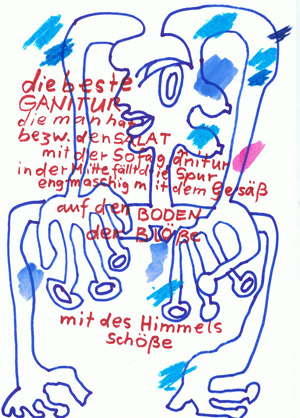 die beste
GANITUR
die man hat
bezw. den SALAT
mit der Sofaganitur
in der Mitte fällt die Spur
engmaschig mit dem Gesäß
auf den BODEN
der BLÖßE
mit des Himmels
schöße